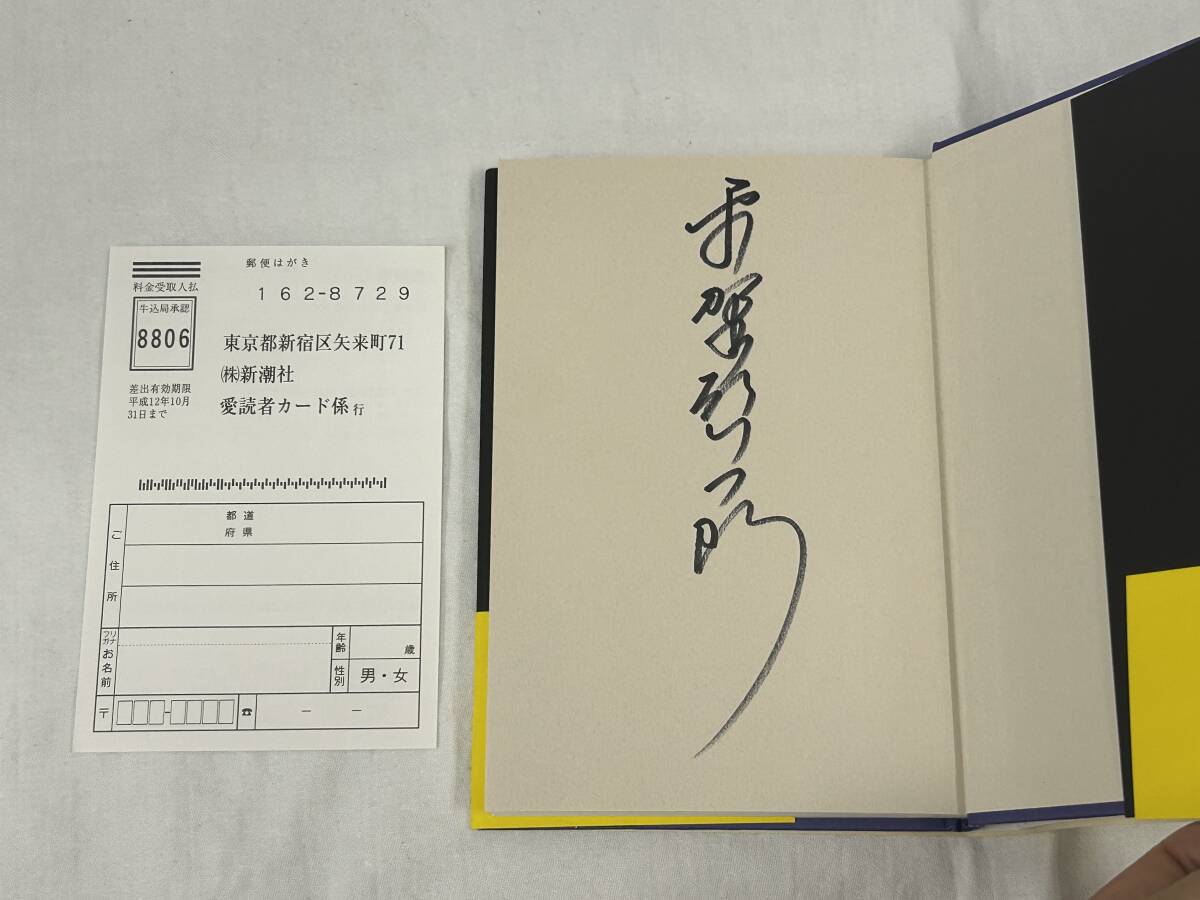 郵便はがき
料金受取人払
162-8729
牛込局承認
8806
東京都新宿区矢来町71
㈱新潮社
愛読者カード係 行
差出有効期限
平成12年10月
31日まで
ご住所
都道
府県
フリガナ
お名前
年齢
歳
性別
男・女
〒
-
☎
－ －